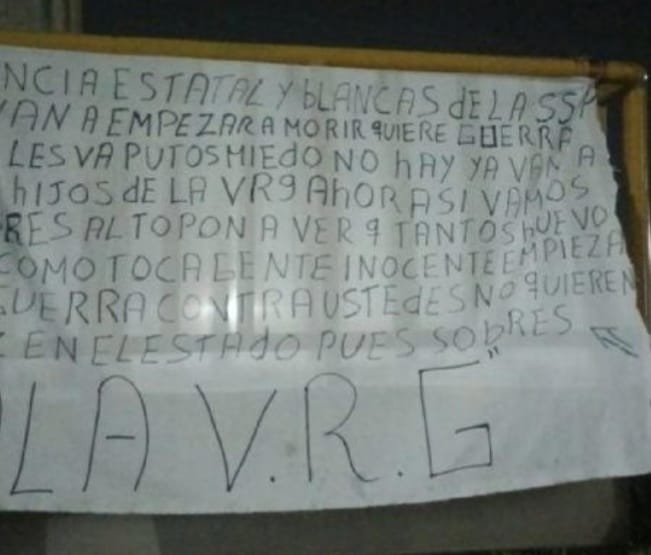 NCIA ESTATAL Y bLANCAS dE LA SSP
VAN A EMPEZAR A MORIR qUIERE GUERRA
LES VA PUTOS MIEdO NO hAY YA VAN A
hIJOS dE LA VRg AhORA SI VAMOS
RES AL TOPON A VER q TANTOS hUEVO
COMO TOCA GENTE INOCENTE EMPIEZA
GUERRA CONTRA USTEdES NO qUIEREN
EN EL ESTAdO PUES SObRES
LA V.R.G"